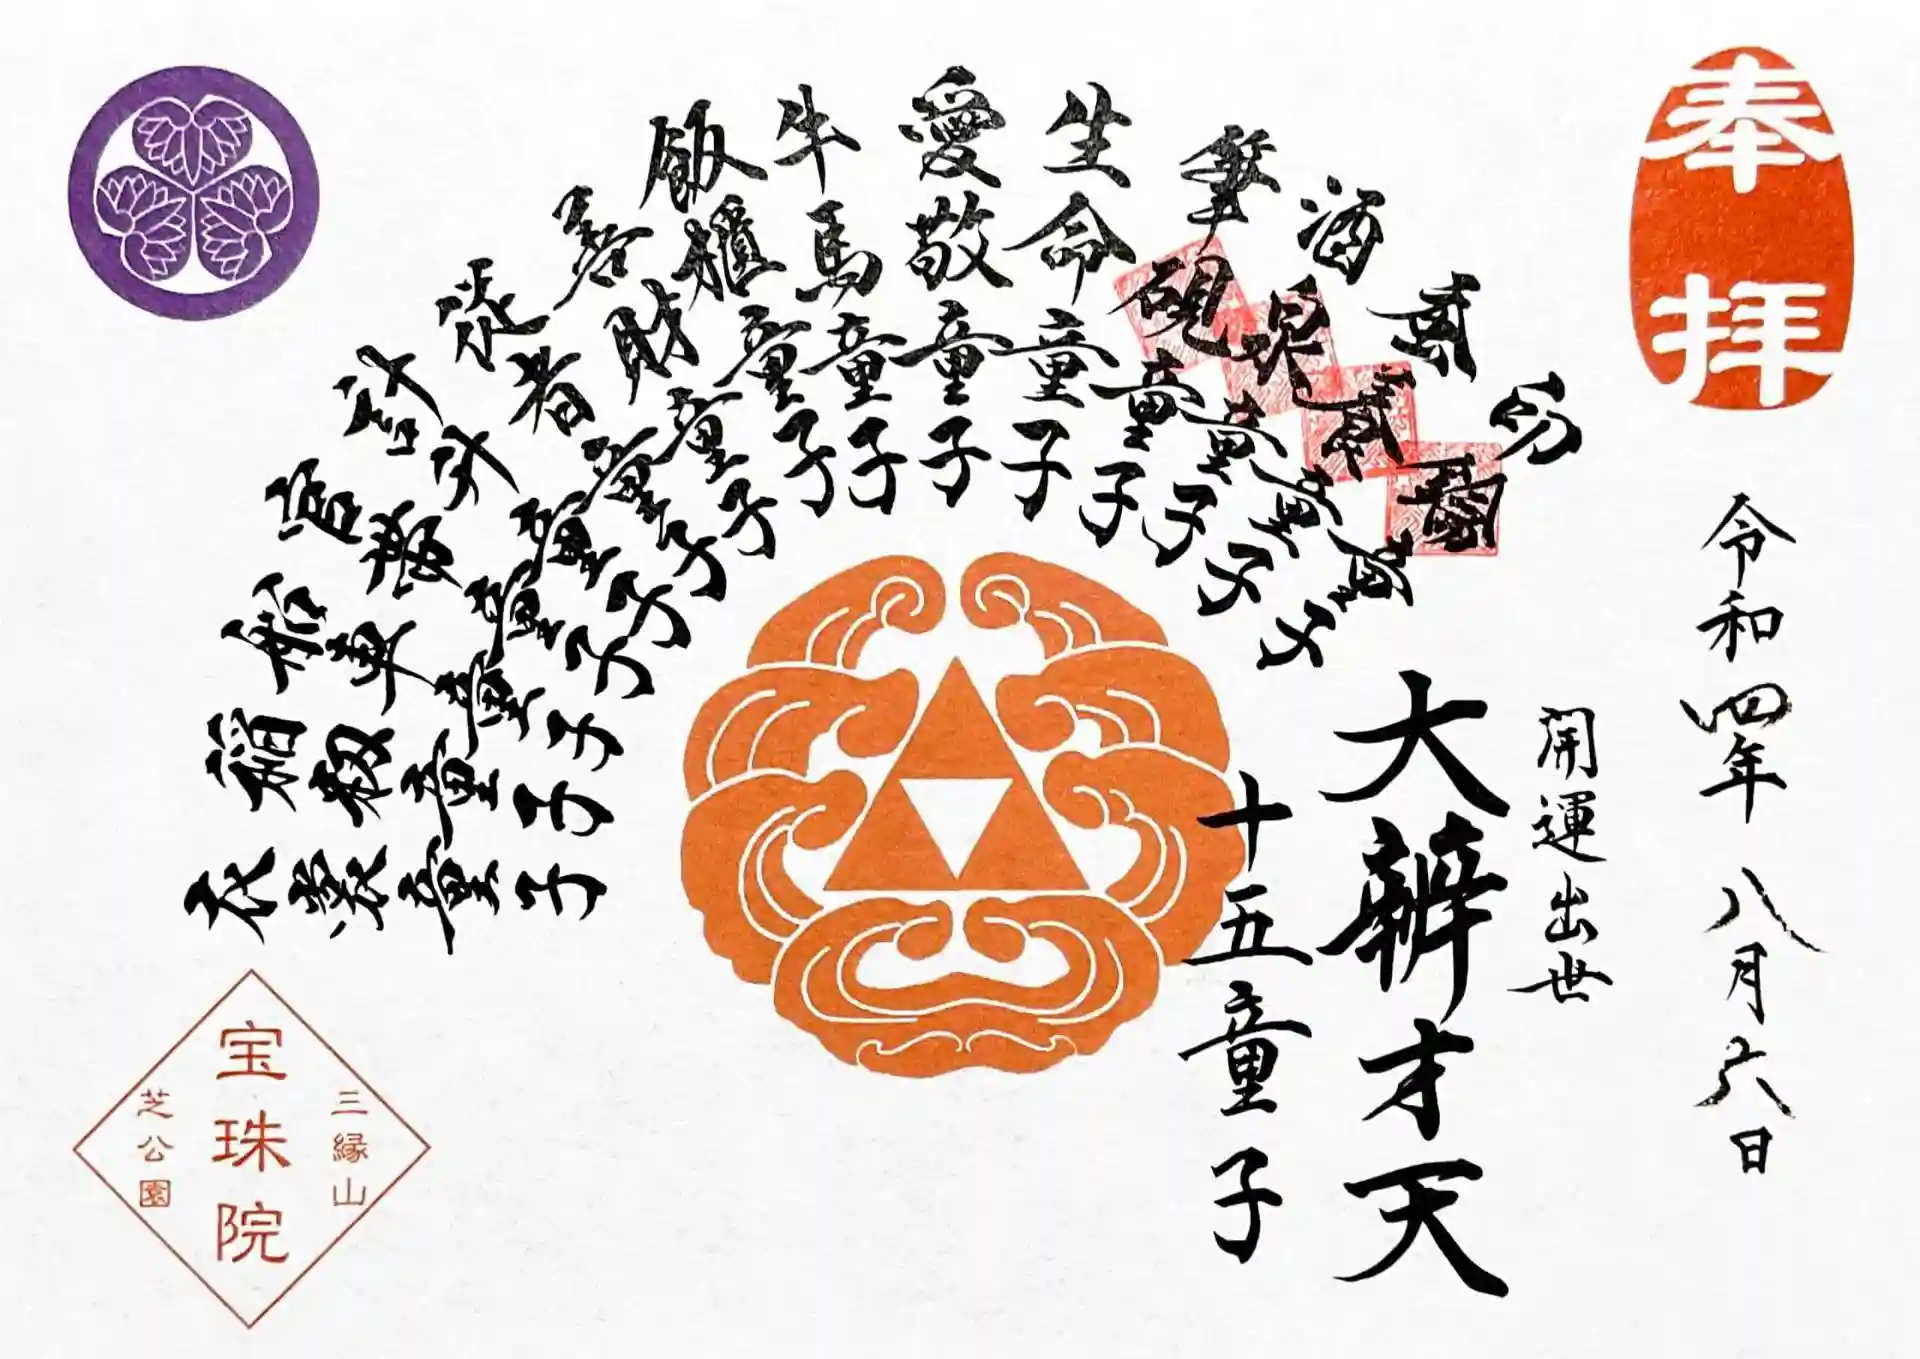 奉拝
令和四年八月六日
開運出世
大辨才天
十五童子
童子
童子
酒泉童子
筆硯童子
生命童子
愛敬童子
牛馬童子
飯櫃童子
善財童子
従者童子
計升童子
官帯童子
船車童子
稲籾童子
衣裳童子
三縁山
宝珠院
芝公園